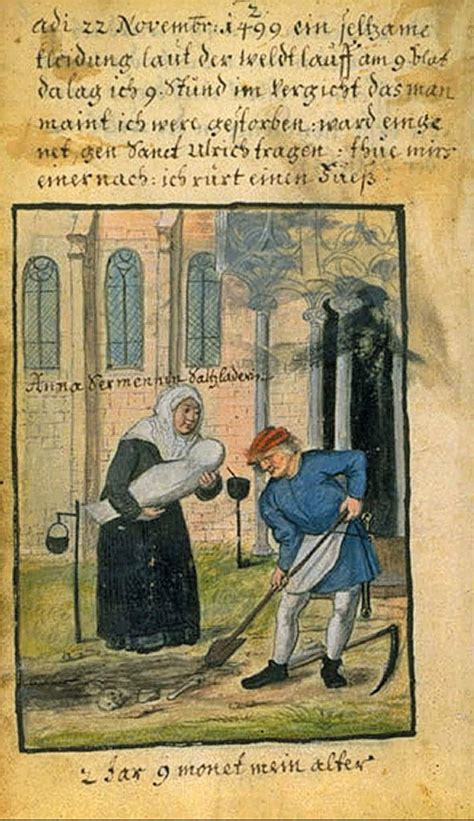 2
adi 22 Novembr: 1499 ein seltzame
kleidung laut der weldtlauff am 9 blat
da lag ich 9. Stund im Vergicht das man
maint ich were gestorben: ward einge
net, gen Sanct Ulrich tragen: thue mirs
einer nach: ich rürt einen Fueß
Anna
2 Jar 9 monet mein alter